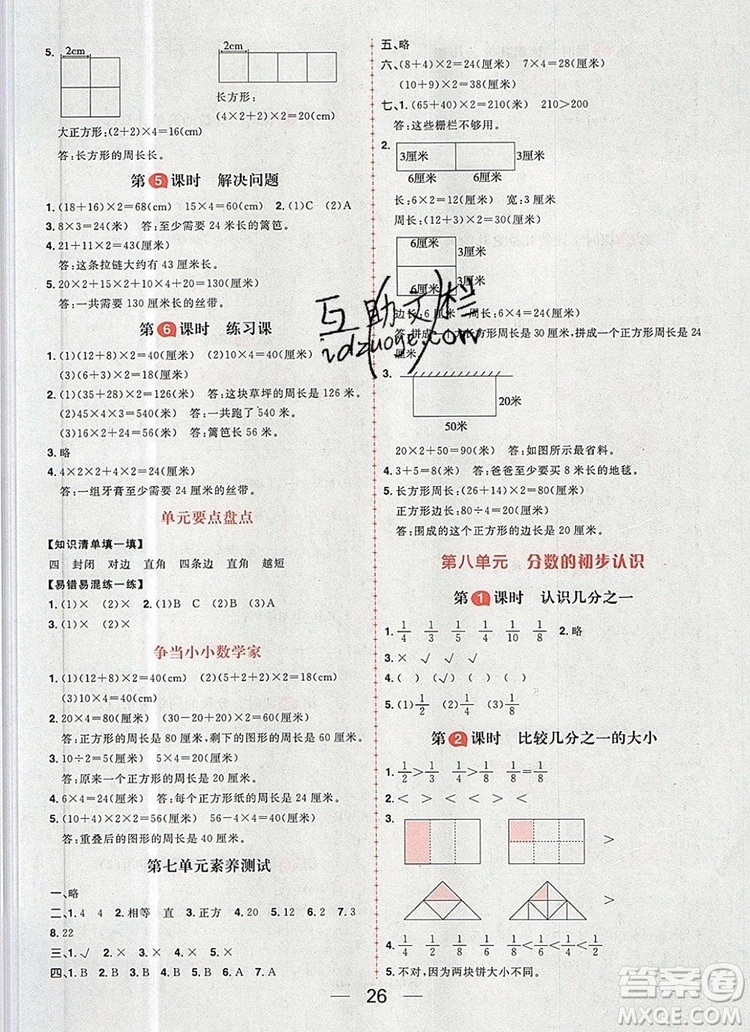 5.
2cm
2cm
长方形:
(4×2+2)×2=20(cm)
大正方形:(2+2)×4=16(cm)
答:长方形的周长长。
第5课时 解决问题
1.(18+16)×2=68(cm) 15×4=60(cm) 2.(1)C (2)A
3.8×3=24(厘米) 答:至少需要 24 厘米长的篱笆。
4.21+11+11=43(厘米)
答:这条拉链大约有 43 厘米长。
5.20×2+15×2+10×4+20=130(厘米)
答:一共需要 130 厘米长的丝带。
第6课时 练习课
1.(1)(12+9)×2=42(厘米) (2)10×4=40(厘米)
(3)(6+13)×2=38(厘米)
2.(1)(35+28)×2=126(米) 答:这块草坪的周长是 126 米。
(2)45×4×3=540(米) 答:一共跑了 540 米。
(3)16×2+24=56(米) 答:篱笆长 56 米。
3.略
4.4×2×2+4×2=24(厘米)
答:一组牙膏至少需要 24 厘米的丝带。
单元要点盘点
【知识清单填一填】
四 封闭 对边 直角 四条边 直角 越短
【易错易混练一练】
1.(1)× (2)× (3)× 2.(1)B (2)C (3)A
3.(1)× (2)× (3)×
争当小小数学家
1.(1)(12+8)×2=40(cm) (2)(5+2+8+5)×2=40(cm)
(3)10×4=40(cm)
2.20×4=80(厘米) (30-20+20)×2=60(厘米)
答:正方形的周长是 80 厘米,剩下的图形的周长是 60 厘米。
3.10÷2=5(厘米) 5×4=20(厘米)
答:原来正方形的周长是 20 厘米。
4.6×4=24(厘米) 答:每个正方形纸的周长是 24 厘米。
5.(10+4)×2×2=56(厘米) 56-4×4=40(厘米)
答:重叠后的图形的周长是 40 厘米。
第七单元素养测试
一、略
二、1.4 4 2.相等 直 3.正方 4.20 5.12 6.2 7.3
8.22
三、1.√ 2.× 3.× 4.× 5.×
四、1.B 2.A 3.C 4.B 5.A
五、略
六、(8+4)×2=24(厘米) 7×4=28(厘米)
(10+9)×2=38(厘米)
七、1.(65+40)×2=210(厘米) 210>200
答:这些栅栏不够用。
2.
3厘米
3厘米
6厘米 6厘米
长:6×2=12(厘米) 宽:3 厘米
周长:(12+3)×2=30(厘米)
6厘米
3厘米
3厘米
6厘米
互助文栏
idzuoye.com
边长:6 厘米 周长:6×4=24(厘米)
答:拼成一个长方形周长是 30 厘米,拼成一个正方形周长是 24 厘米。
3.
20米
50米
20×2+50=90(米) 答:如图所示最省料。
4.3+5=8(米) 答:爸爸至少要买 8 米长的地毯。
5.长方形周长:(26+14)×2=80(厘米)
正方形边长:80÷4=20(厘米)
答:围成的这个正方形的边长是 20 厘米。
第八单元 分数的初步认识
第1课时 认识几分之一
1. 1/4 1/3 1/4 1/6 1/10 1/8 2.略
3.× √ √ ×
4.( ) (√) ( ) (√)
5.(1)1/2 (2)1/4 (3)1/8
第2课时 比较几分之一的大小
1. 1/2>1/3 1/4<1/2 1/4>1/8 1/8=1/8
2.< < < > < >
3.
>
>
4. 1/4 1/8 1/4 1/8 1/8
5.不对,因为两块饼大小不同。
26
答案圈
MXQE.COM